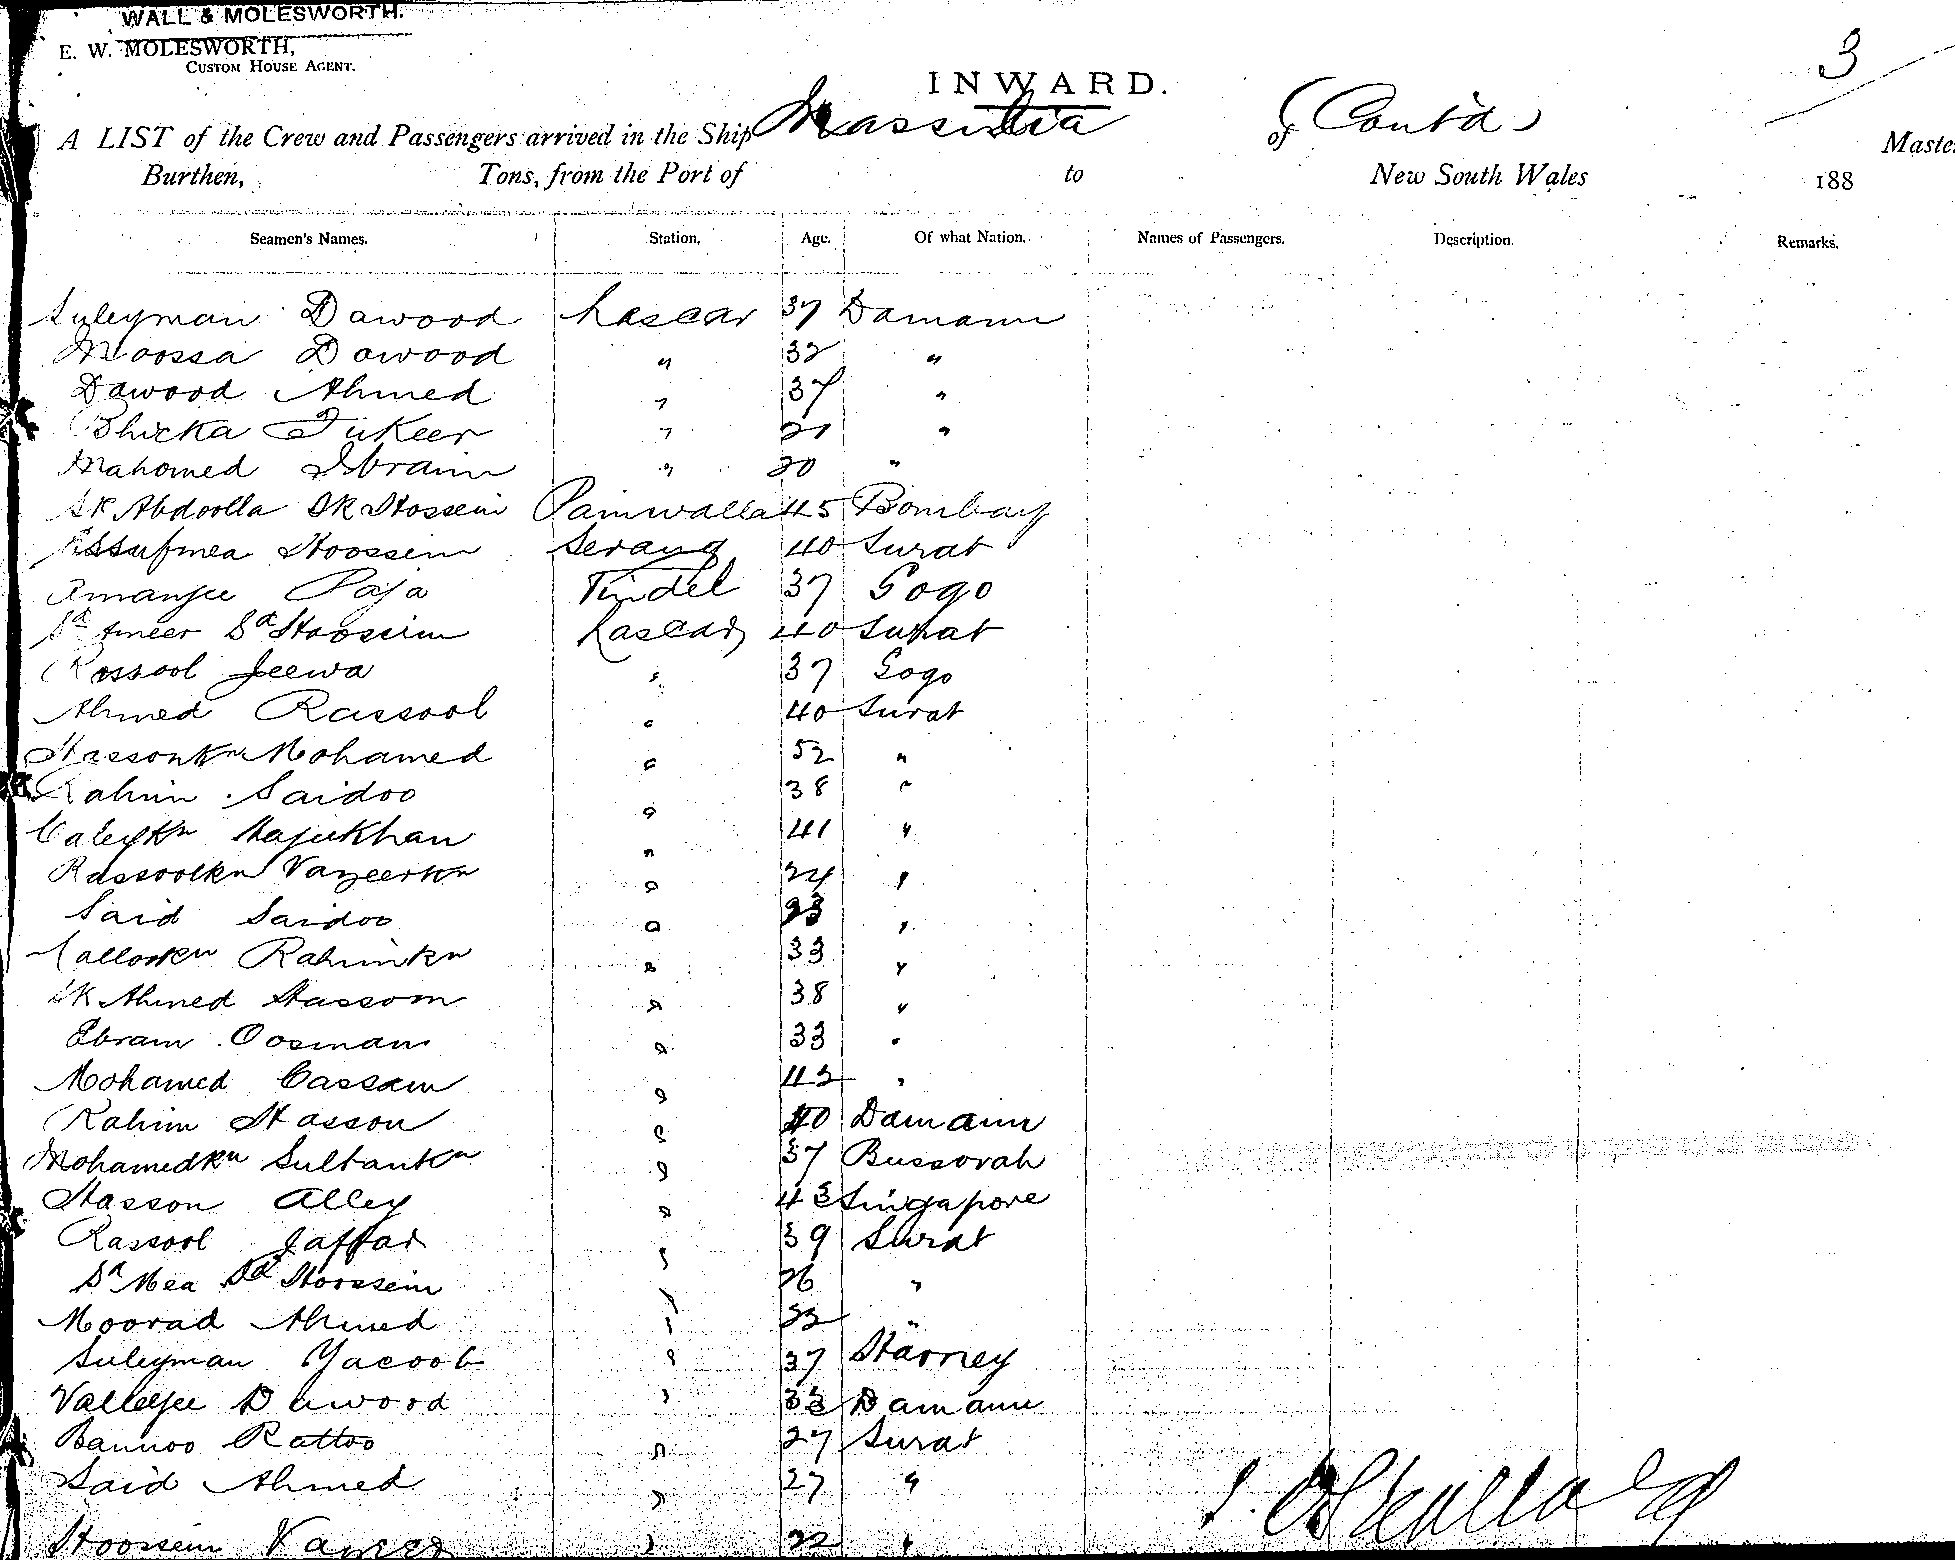 WALL & MOLESWORTH.
E. W. MOLESWORTH,
CUSTOM HOUSE AGENT.
3
INWARD.
A LIST of the Crew and Passengers arrived in the Ship Massilia of (Cont'd) Master
Burthen, Tons, from the Port of to New South Wales 188
Seamen's Names. Station, Age. Of what Nation. Names of Passengers. Description. Remarks.
Suleyman Dawood Lascar 37 Damann
Moossa Dawood " 32 "
Dawood Ahmed " 37 "
Bhicka Fukeer " 21 "
Mahomed Ibraim " 20 "
SK Abdoolla SK Hossein Painwalla 45 Bombay
Essufmea Hoossein Serang 40 Surat
Amanjee Paja Tindel 37 Gogo
Sd Ameer Sd Hoossein Lascar 40 Surat
Rossool Jeewa " 37 Gogo
Ahmed Rassool " 40 Surat
Hassonkn Mohamed " 52 "
Rahim Saidoo " 38 "
Caleykn Hajukhan " 41 "
Rassoolkn Vazeerkn " 24 "
Said Saidoo " 23 "
Kallookn Rahimkn " 33 "
SK Ahmed Hassom " 38 "
Ebram Oosman " 33 "
Mohamed Cassam " 42 "
Rahim Hasson " 40 Damann
Mohamedkn Sultankn " 37 Bussorah
Hasson Alley " 43 Singapore
Rassool Jaffar " 39 Surat
Sd Mea Sd Hoossein " 26 "
Moorad Ahmed " 32 "
Suleyman Yacoob " 37 Harney
Valleyjee Dawood " 33 Damann
Bannoo Rattoo " 27 Surat
Said Ahmed " 27 "
Hoossein " 22 "